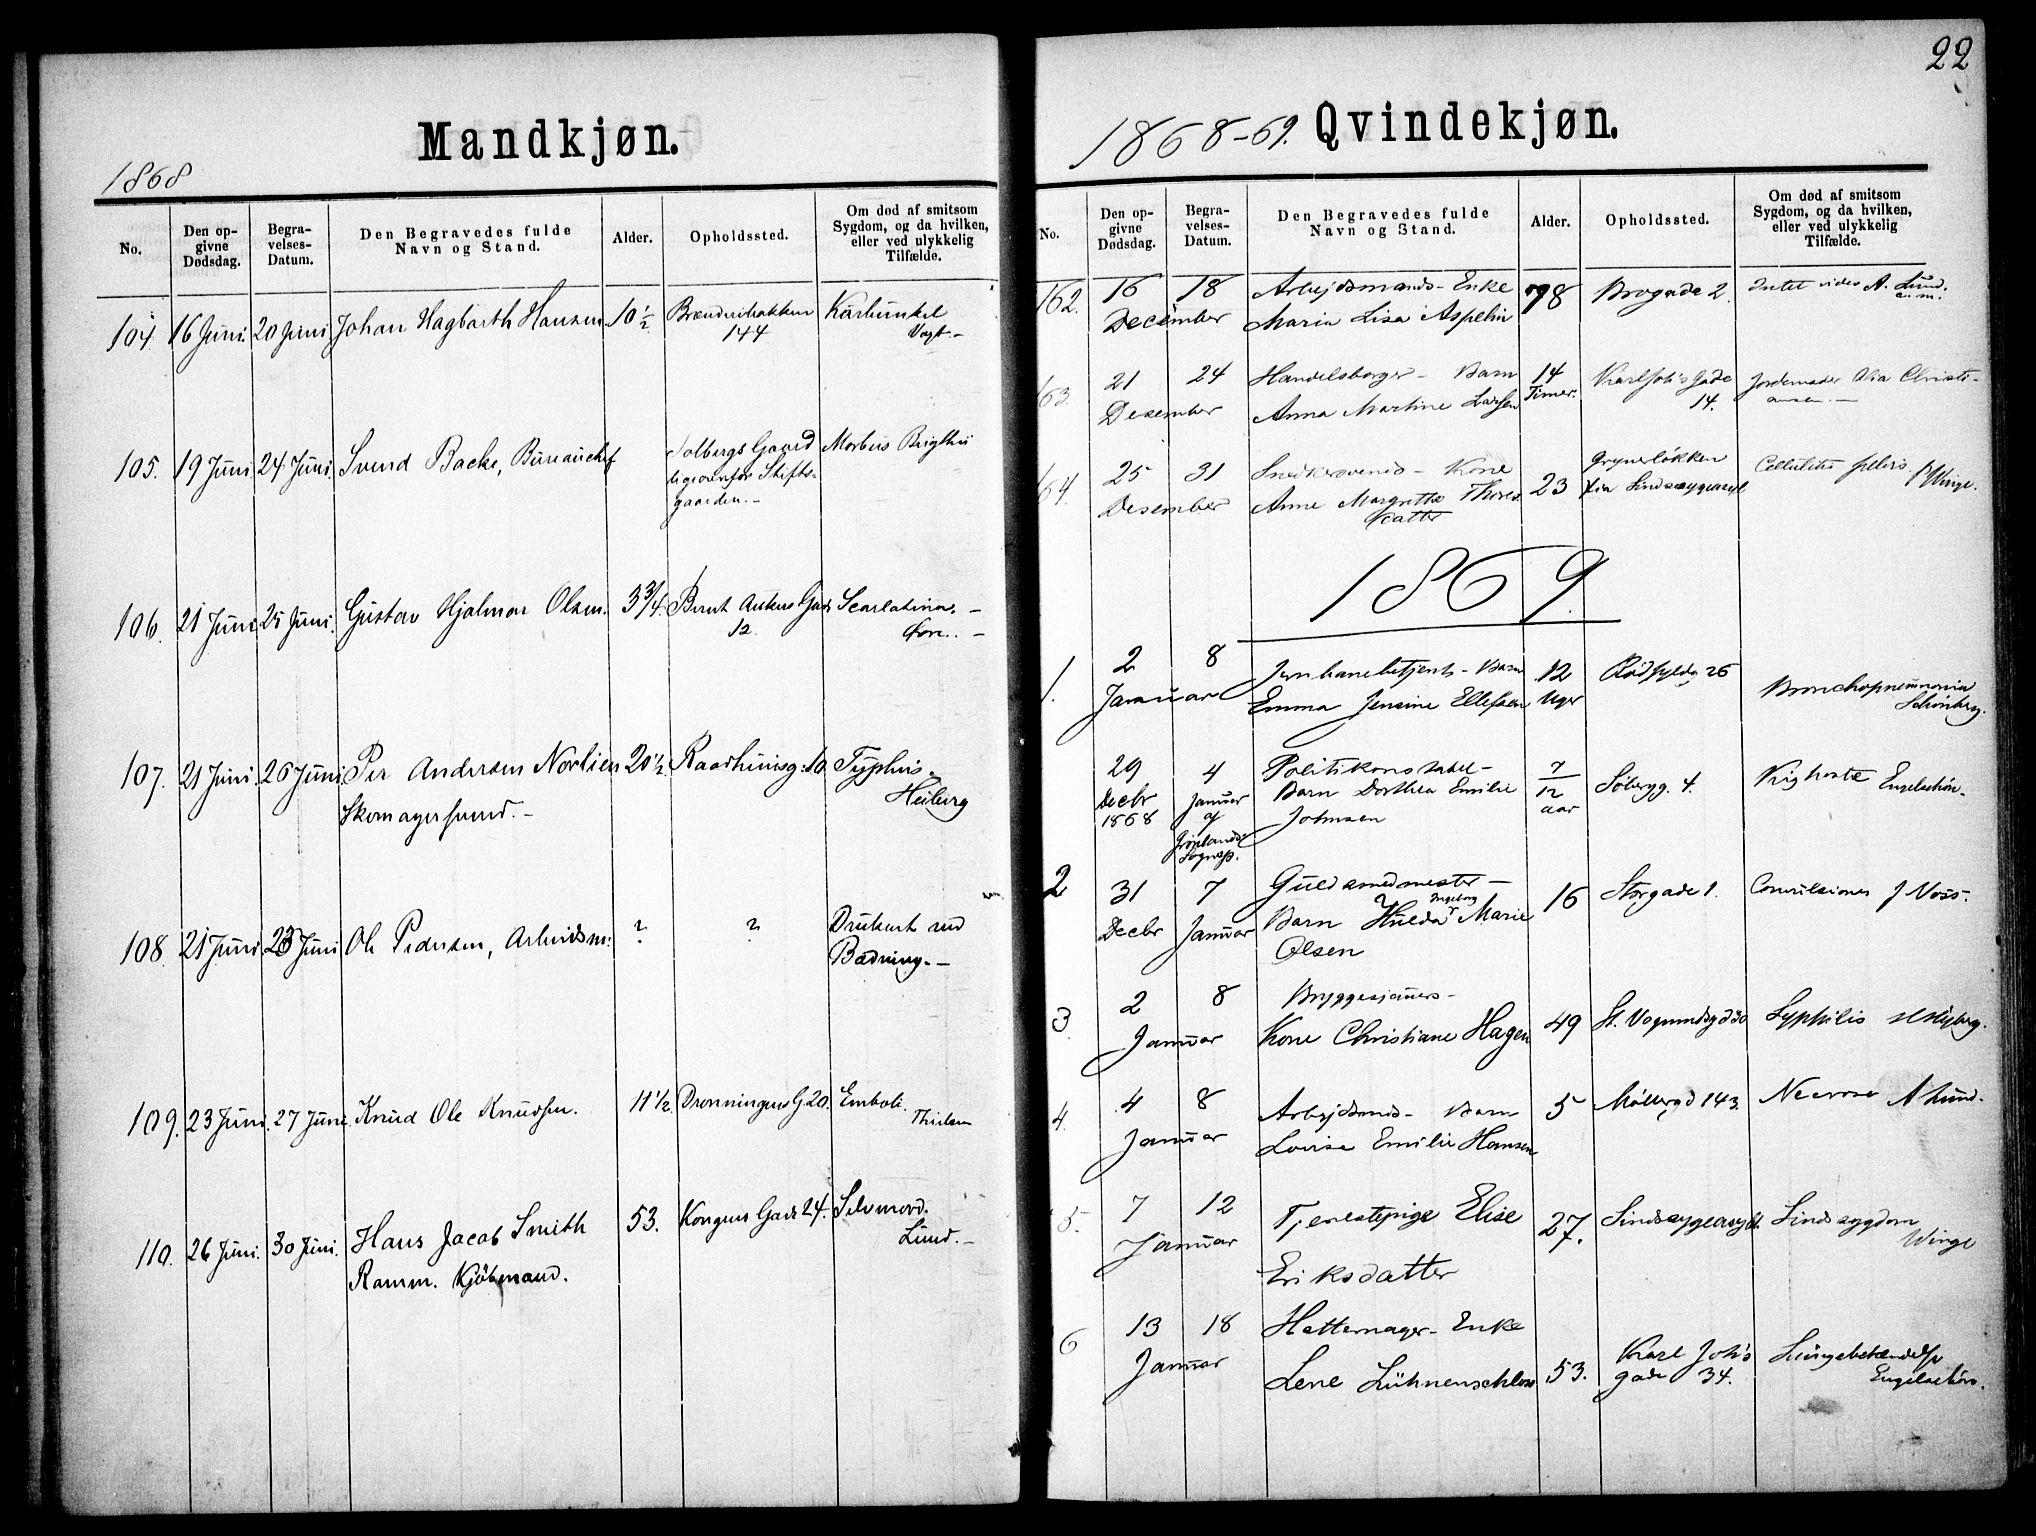 22
Mandkjøn.
1868
No.
Den opgivne Dødsdag.
Begravelses-Datum.
Den Begravedes fulde Navn og Stand.
Alder.
Opholdssted.
Om død af smitsom Sygdom, og da hvilken, eller ved ulykkelig Tilfælde.
104. 16 Juni. 20 Juni Johan Hagbarth Hansen 10 1/2 Brændvibakken Karbunkel
144 Vogt.-
105. 19 Juni 24 Juni. Svend Backe, Bureauchef Solbergs Gaard Morbus Brigthii
ligeovenfor Stifts-
gaarden.-
106. 21 Juni 25 Juni. Gustav Hjalmar Olsen. 3 3/4. Bernt Ankers Gade Scarlatina.-
12.
107. 21 Juni. 26 Juni. Per Andersen Norlien 20 1/2. Raadhuusg: 10 Typhus.
Skomagersvend.- Heiberg
108. 21 Juni 23 Juni Ole Pedersen, Arbeidsm: ? ? Druknet ved
Badning.-
109. 23 Juni. 27 Juni. Knud Ole Knudsen. 11 1/2 Dronningens G 20. Emboli.
110. 26 Juni. 30 Juni. Hans Jacob Smith 53. Kongens Gade 24. Selvmord.
Ramm. Kjøbmand. Lund.-
1868-69. Qvindekjøn.
No.
Den opgivne Dødsdag.
Begravelses-Datum.
Den Begravedes fulde Navn og Stand.
Alder.
Opholdssted.
Om død af smitsom Sygdom, og da hvilken, eller ved ulykkelig Tilfælde.
162. 16 18 Arbejdsmands- Enke 78 Brogade 2. Intet vides A. Lund.
December Maria Lisa Aspelin
163. 21 24 Handelsborger- Barn 14 Karl Joh's Gade Jordemoder Christi-
Desember Anna Martine Larsen Timer. 14. ansen.-
164. 25 31 Snedkersvends- Kone 23 Grynerløkken Cellulitis pelvis. Winge.
Desember Anne Margrethe Thores Sindssygeasyl
datter
1869.
1. 2 8 Jernbanebetjents- Barn 12 Rødfyldg 26 Bronchopneumonia
Januar Emma Jensine Ellefsen Uger Schønberg.
29 4 Politikonstabel- 7/12 Søbergg. 4. Kighoste Engelschiøn.
Decbr Januar Barn Dorthea Emilie aar
1868 af Johnsen
Grønlands
Sognep.
2 31 7 Guldsmedmester- 16 Storgade 1. Convulsioner J Voss.
Decbr Januar Barn Hulda Ingeborg Marie
Olsen
3 2 8 Bryggesjauers- 49 St. Vognmdsgd 30 Syphilis
Januar Kone Christiane Hagen
4. 4 8 Arbejdsmds- Barn 5 Møllergd 143. Nevrose A Lund.
Januar Lovise Emilie Hansen
5. 7 12 Tjenestepige Elise 27. Sindssygeasyl. Sindssygdom
Januar Eriksdatter Winge
6 13 18 Hattemager- Enke 53. Karl Joh's Lungebetændelse
Januar Lene Lühnenschloss gade 34. Engelschiøn.